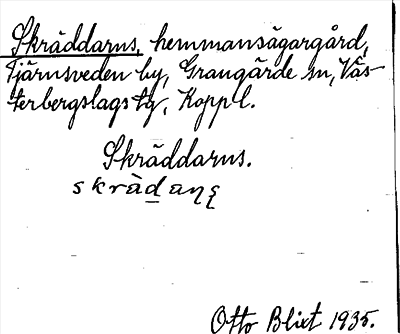 Skräddarns, hemmansägargård,
Tjärnsveden by, Grangärde sn, Väs-
terbergslags tg, Koppl.
Skräddarns.
Otto Blixt 1935.